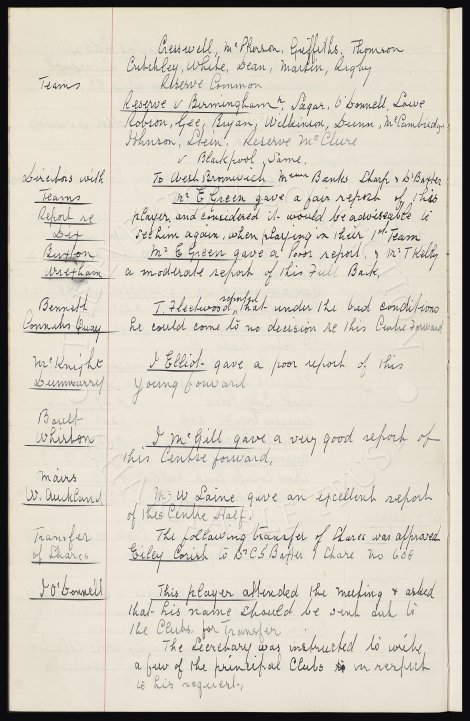 Cresswell, McPherson, Griffiths, Thomson
Critchley, White, Dean, Martin, Rigby
Teams
Reserve Common
Reserve v Birmingham R, Sagar, O'Donnell, Lowe
Robson, Gee, Bryan, Wilkinson, Dunn, McCambridge
Johnson, Stein. Reserve McClure
v Blackpool, Same.
Directors with Teams
To West Bromwich Messrs Banks Sharp & Dr Baxter
Report re
Dix
Mr E Green gave a fair report of this
player, and considered it would be adviseable to
see him again, when playing in their 1st Team
Buxton
Wrexham
Mr E Green gave a Poor report, & Mr T Kelly
a moderate report of this Full Back.
Bennett
Connahs Quay
T. Fleetwood reported that under the bad conditions
he could come to no decision re this Centre Forward
McKnight
Dunmurry
J Elliot gave a poor report of this
Young forward
Boult
Wharton
J McGill gave a very good report of
this Centre forward,
Mairs
W. Auckland
Mr W Laine gave an excellent report
of this Centre Half.
Transfer
of Shares
The following transfer of Shares was approved
Corish to Dr C S Baxter 1 Share No 608
J O'Donnell
This player attended the meeting & asked
that his name should be sent out to
the Clubs for Transfer
The Secretary was instructed to write
a few of the principal Clubs in respect
to his request,